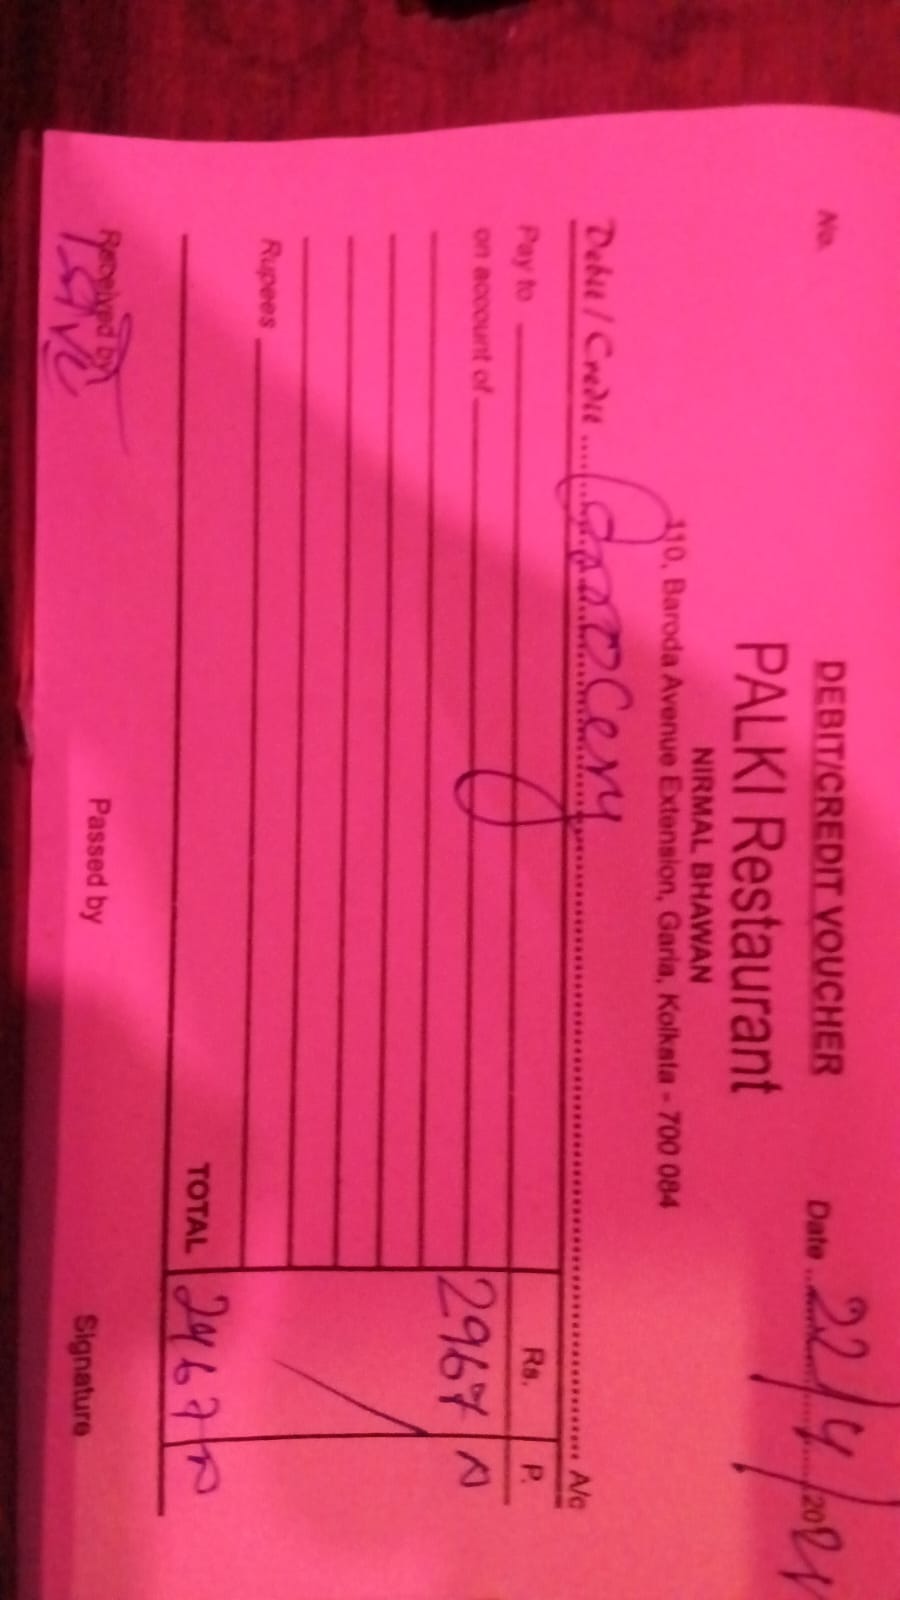 DEBIT/CREDIT VOUCHER
No.
Date 22/4/20
PALKI Restaurant
NIRMAL BHAWAN
110, Baroda Avenue Extension, Garia, Kolkata - 700 084
Debit / Credit ..... Groocery ..... A/c
Pay to
Rs. P.
on account of
2967
Rupees
TOTAL
Received by
Passed by
Signature